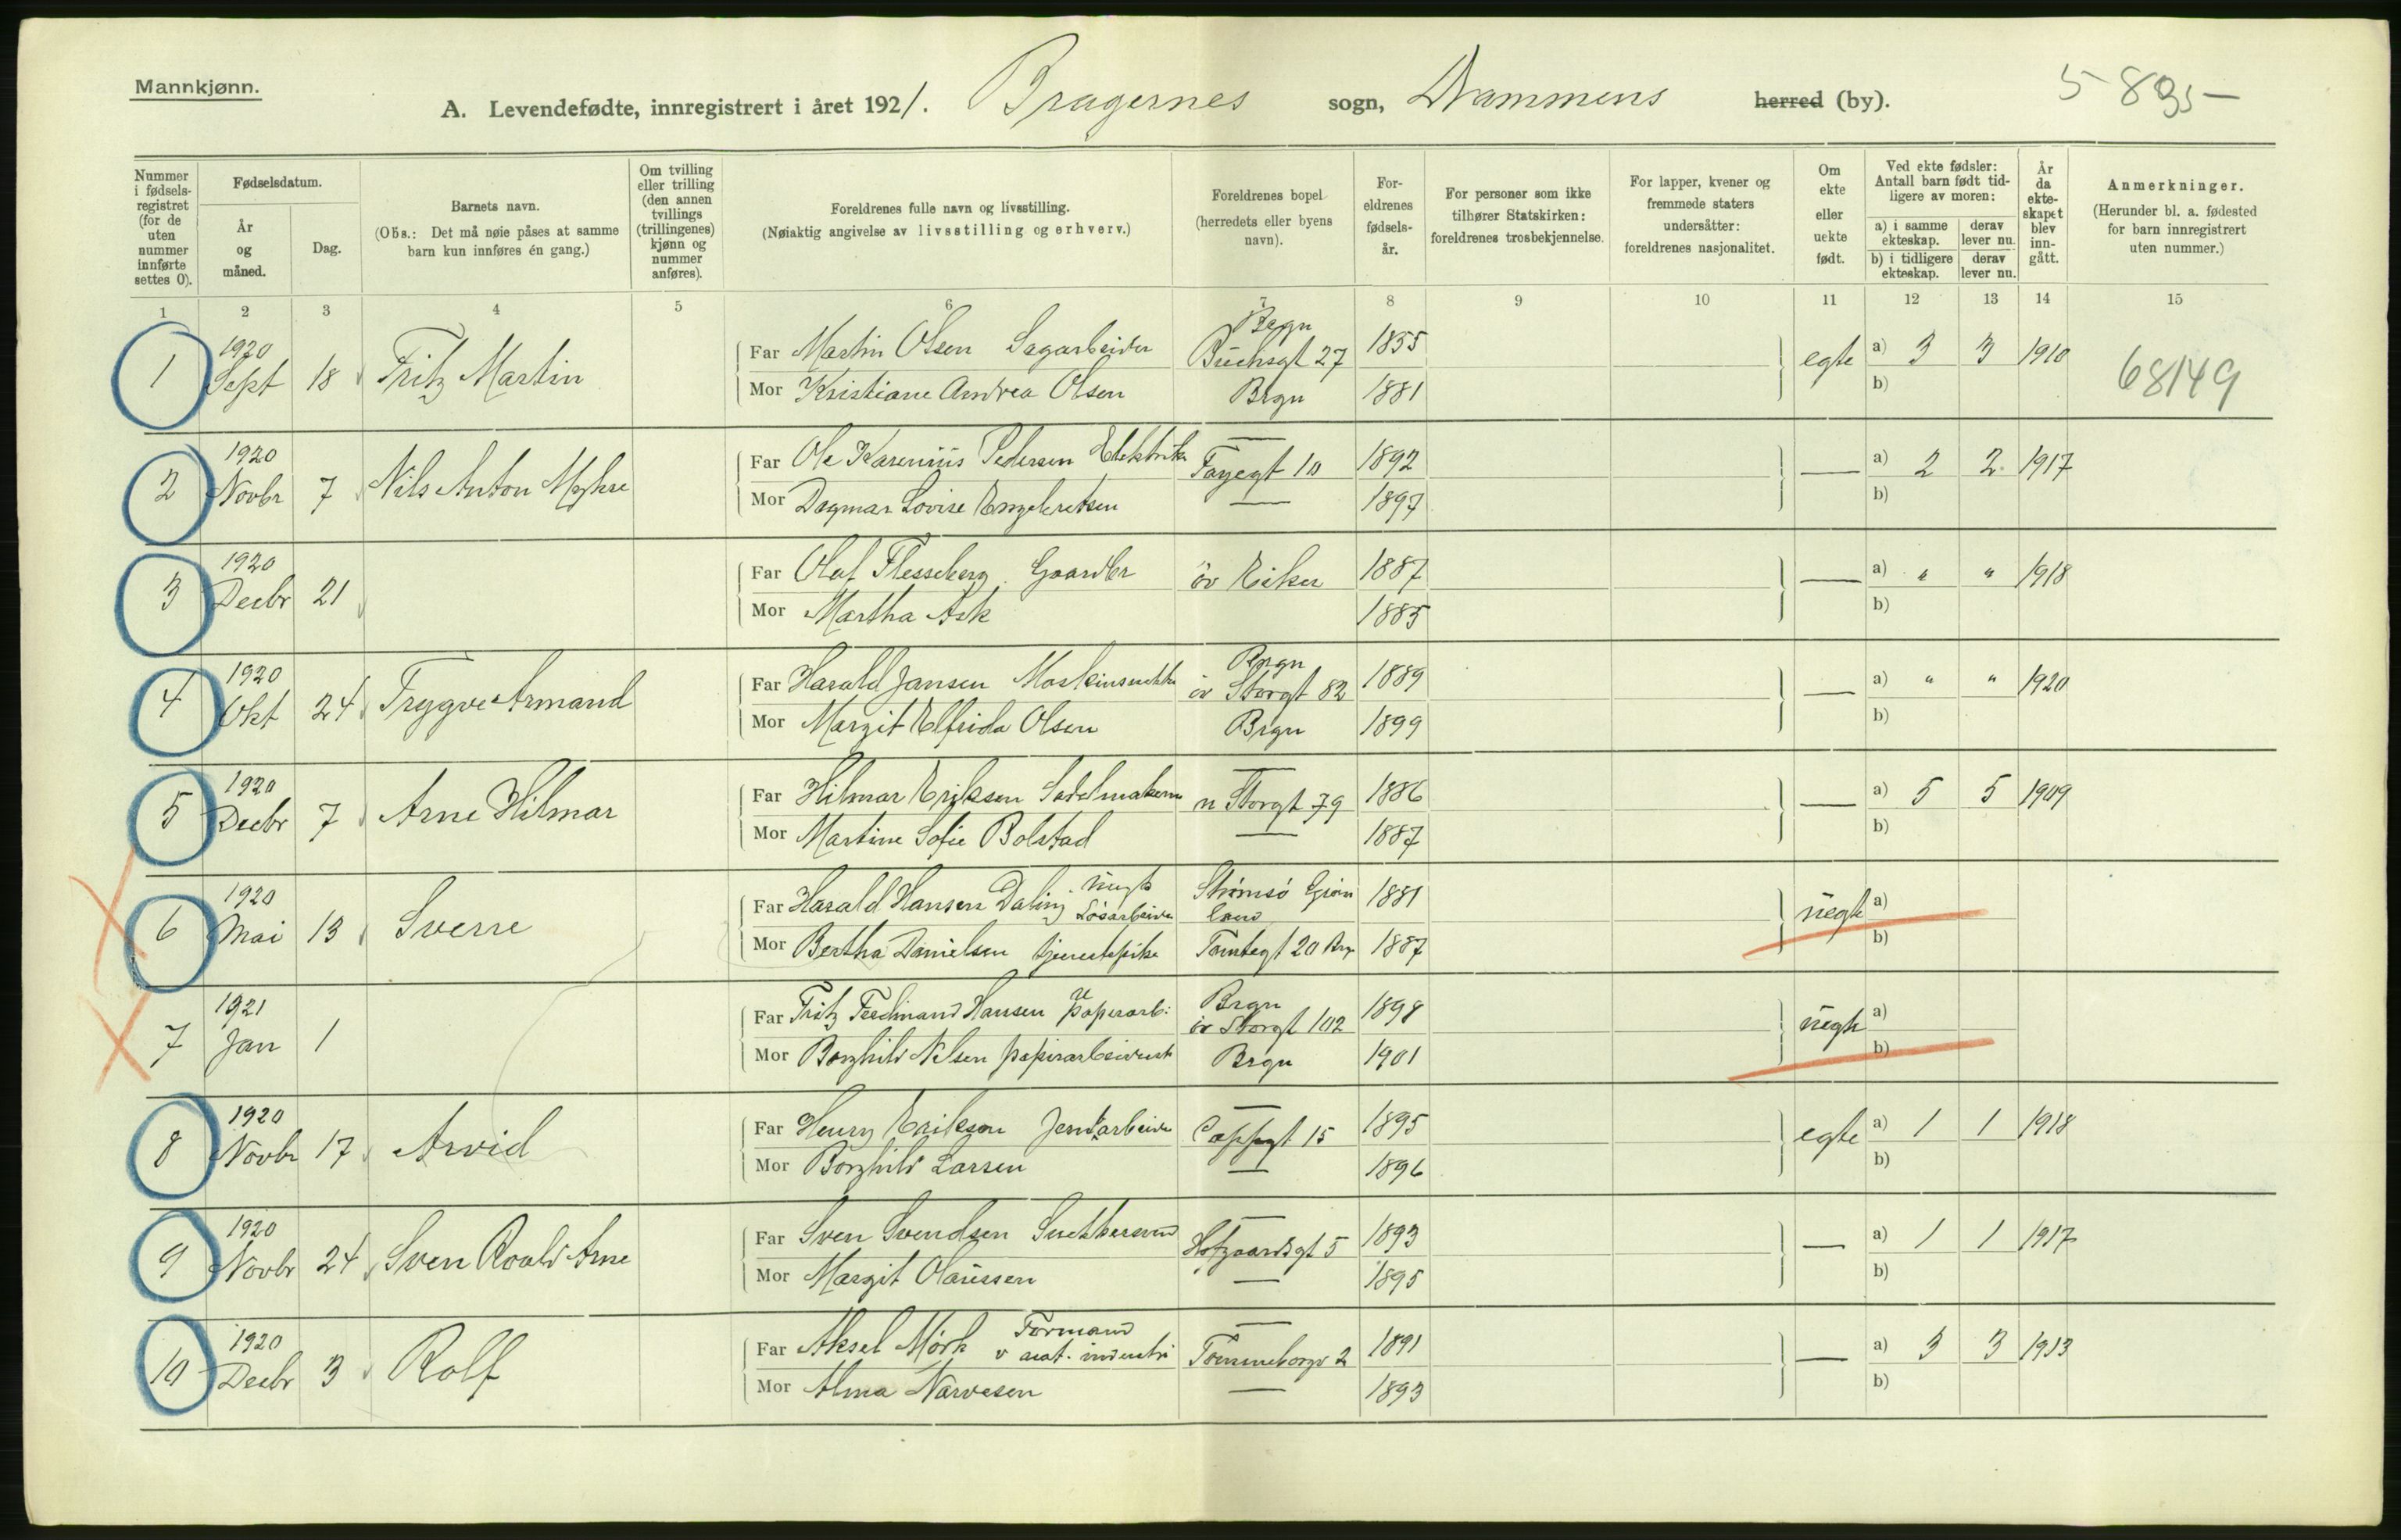 Mannkjønn.
A. Levendefødte, innregistrert i året 1921. Bragernes sogn, Drammens herred (by).
5895-
Nummer i fødsels-registret (for de uten nummer innførte settes 0).
Fødselsdatum.
År og måned.
Dag.
Barnets navn.
(Obs.: Det må nøie påses at samme barn kun innføres én gang.)
Om tvilling eller trilling (den annen tvillings (trillingenes) kjønn og nummer anføres).
Foreldrenes fulle navn og livsstilling.
(Nøiaktig angivelse av livsstilling og erhverv.)
Foreldrenes bopel (herredets eller byens navn).
For-eldrenes fødsels-år.
For personer som ikke tilhører Statskirken: foreldrenes trosbekjennelse.
For lapper, kvener og fremmede staters undersåtter: foreldrenes nasjonalitet.
Om ekte eller uekte født.
Ved ekte fødsler: Antall barn født tid-ligere av moren:
a) i samme ekteskap.
derav lever nu.
b) i tidligere ekteskap.
derav lever nu.
År da ekte-skapet blev inn-gått.
Anmerkninger.
(Herunder bl. a. fødested for barn innregistrert uten nummer.)
1 2 3 4 5 6 7 8 9 10 11 12 13 14 15
1 1920 Sept 18 Fritz Martin Far Martin Olsen Sagarbeider Brgn Buchsgt 27 1855 egte a) 3 3 1910 68149
Mor Kristiane Andrea Olsen Brgn 1881 b)
2 1920 Novbr 7 Nils Anton Far Ole Karenius Pedersen Elektrik Fayegt 10 1892 — a) 2 2 1917
Mor Dagmar Lovise Engebretsen — 1897 b)
3 1920 Decbr 21 Far Olaf Flesseberg Gaardbr öv Eiker 1887 — a) " " 1918
Mor Martha Ask 1885 b)
4 1920 Okt 24 Trygve Armand Far Harald Jansen Brgn öv Storgt 82 1889 — a) " " 1920
Mor Margit Elfrida Olsen Brgn 1899 b)
5 1920 Decbr 7 Arne Hilmar Far Hilmar Eriksen Sadelmaker n Storgt 79 1886 — a) 5 5 1909
Mor Martine Sofie Bolstad — 1887 b)
6 1920 Mai 13 Sverre Far Harald Hansen Daling ungk Løsarbeider Strømsö Grön land 1881 uegte a)
Mor Bertha Danielsen tjenestepike Tomtegt 20 Brgn 1887 b)
7 1921 Jan 1 Far Fritz Ferdinand Hansen papirarb: Brgn öv Storgt 102 1898 uegte a)
Mor Borghild Nilsen papirarbeiderske Brgn 1901 b)
8 1920 Novbr 17 Arvid Far Henry Eriksen Jernarbeider Cappgt 15 1895 egte a) 1 1 1918
Mor Borghild Larsen — 1896 b)
9 1920 Novbr 24 Sven Roald Arne Far Sven Svendsen Snekkersvend Hofgaardsgt 5 1893 — a) 1 1 1917
Mor Margit Olaussen — 1895 b)
10 1920 Decbr 3 Rolf Far Aksel Mörk Formand v industri 2 1891 — a) 3 3 1913
Mor Alma Narvesen — 1893 b)